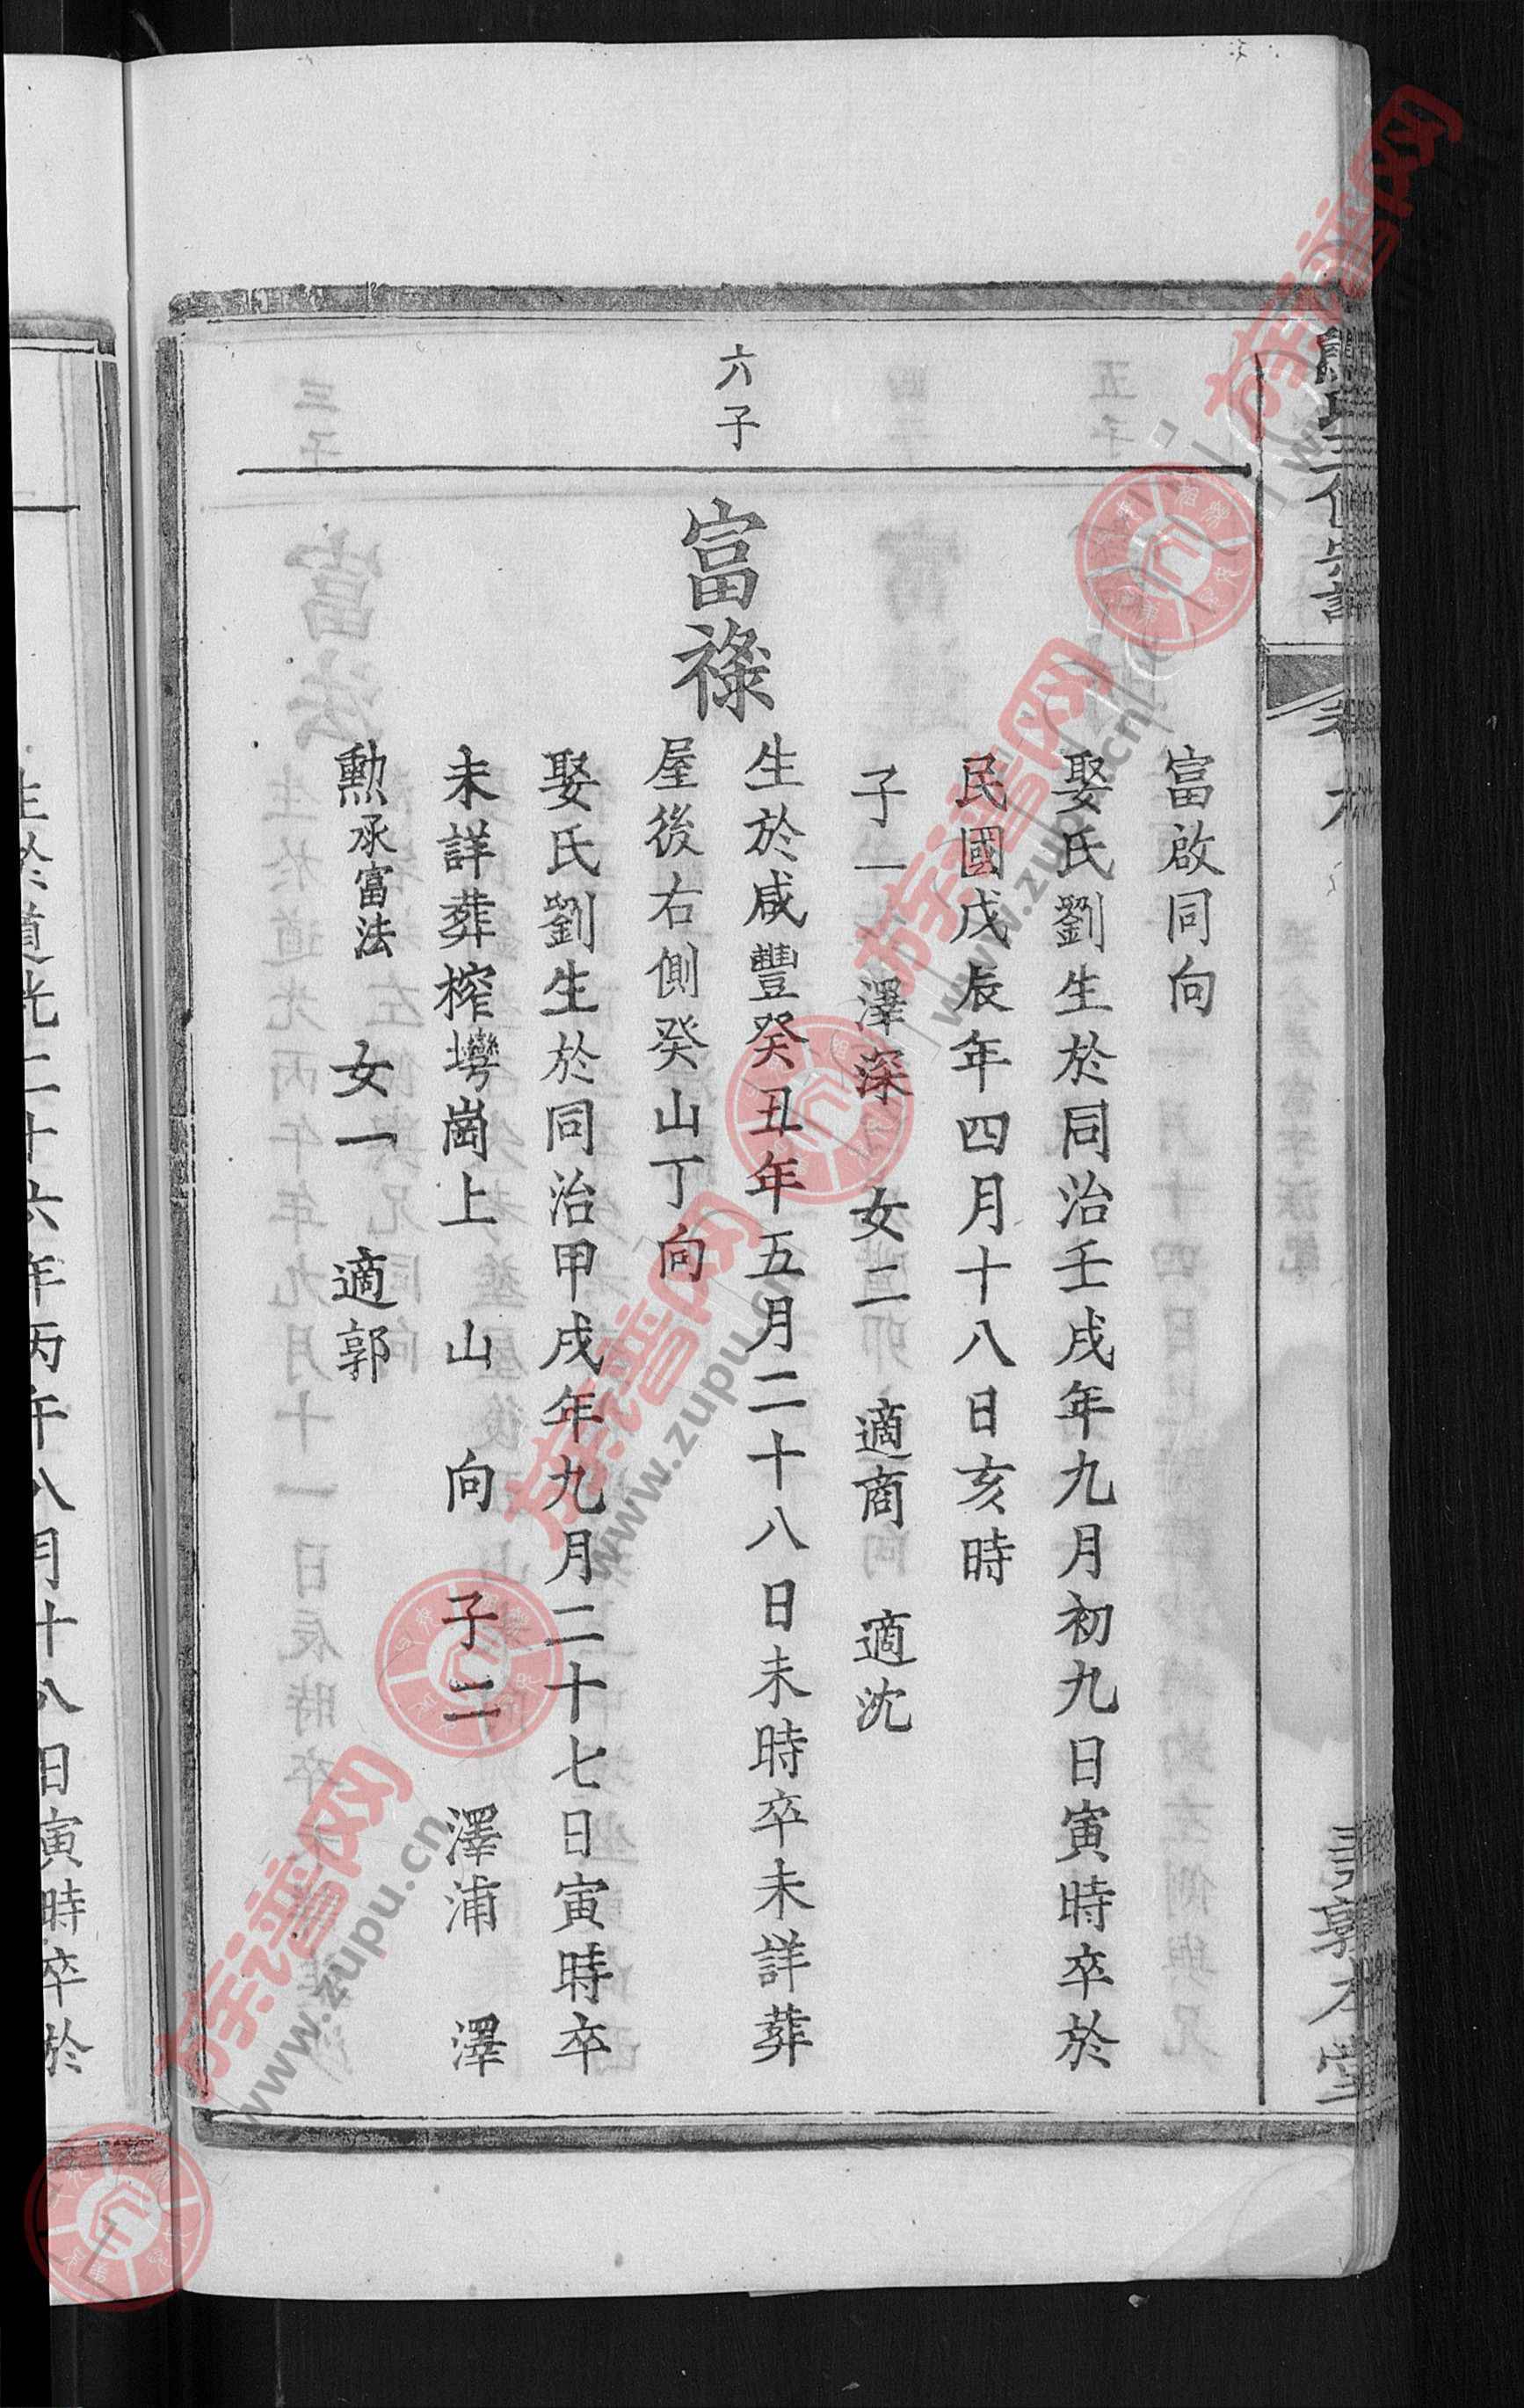 富啟同向
娶氏劉生於同治壬戌年九月初九日寅時卒於
民國戊辰年四月十八日亥時
子一 澤深 女二 適商 適沈
六子
富祿
生於咸豐癸丑年五月二十八日未時卒未詳葬
屋後右側癸山丁向
娶氏劉生於同治甲戌年九月二十七日寅時卒
未詳葬榨塆崗上 山 向 子二 澤浦 澤
勲承富法 女一 適郭
生於道光二十六年丙午八月十八日寅時卒於
族谱网
www.zupu.cn
族谱网
www.zupu.cn
族谱网
www.zupu.cn
族谱网